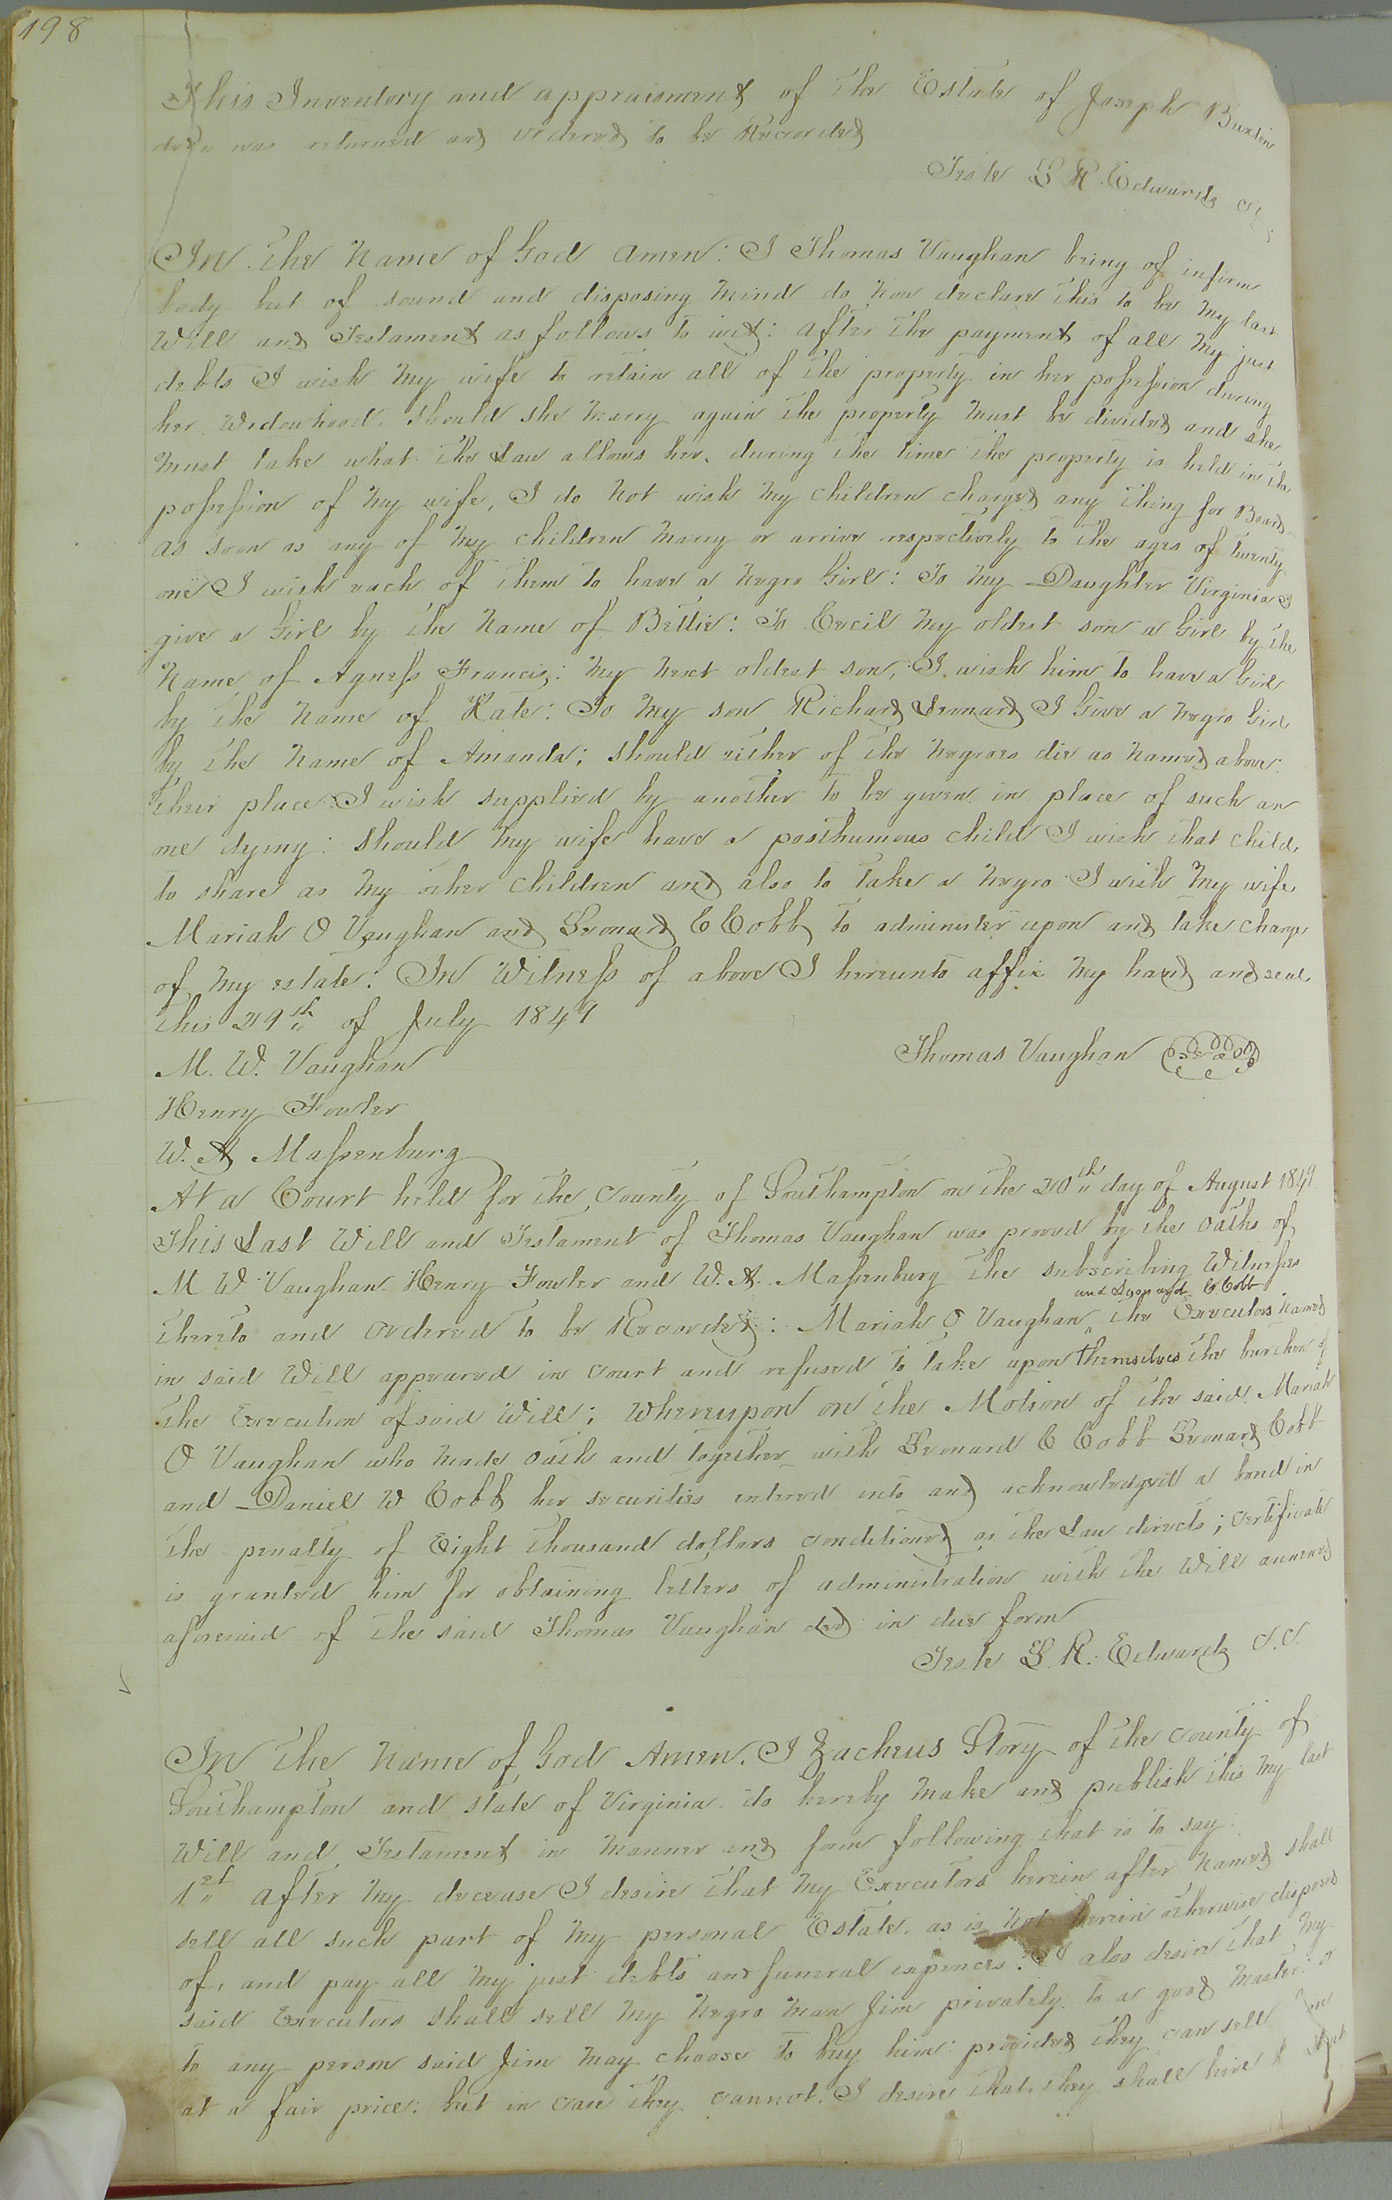 198
This Inventory and appraisement of the Estate of Joseph
decd was returned and ordered to be Recorded
Teste L R. Edwards
In the Name of God Amen: I Thomas Vaughan being of infirm
body but of sound and disposing mind do now declare this to be my last
Will and Testament as follows to wit: after the payment of all my just
debts I wish my wife to retain all of the property in her possession during
her Widowhood. Should she marry again the property must be divided and she
must take what the Law allows her, during the time the property is held in the
possession of my wife, I do not wish my children charged any thing for Board
as soon as any of my children marry or arrive respectively to the ages of twenty
one I wish each of them to have a negro Girl: To my Daughter Virginia I
give a Girl by the name of Bettie: To Cecil my oldest son a Girl by the
Name of Agness Francis: my next oldest son, I wish him to have a Girl
by the name of Kate: To my son Richard Leonard I Give a negro Girl
by the name of Amanda; should either of the negroes die as named above
their place I wish supplied by another to be given in place of such an
one dying: Should my wife have a posthumous child I wish that child
to share as my other children and also to take a negro I wish my wife
Mariah O Vaughan and Leonard C Cobb to administer upon and take charge
of my estate: In Witness of above I hereunto affix my hand and seal
this 29th of July 1849
M. W. Vaughan
Thomas Vaughan Seal
Henry Fowler
W. A Massenburg
At a Court held for the County of Southampton on the 20th day of August 1849
This Last Will and Testament of Thomas Vaughan was proved by the oaths of
M W Vaughan Henry Fowler and W. A. Massenburg the subscribing Witnesses
and Leonard C Cobb
thereto and ordered to be Recorded: Mariah O Vaughan the Executors named
in said Will appeared in Court and refused to take upon themselves the burthen of
the Execution of said Will; Whereupon on the Motion of the said Mariah
O Vaughan who made oath and together with Leonard C Cobb Leonard Cobb
and Daniel W Cobb her securities entered into and acknowledged a bond in
the penalty of Eight thousand dollars conditioned as the Law directs; certificate
is granted him for obtaining letters of administration with the Will annexed
aforesaid of the said Thomas Vaughan decd in due form
Teste L. R. Edwards C.C.
In the name of God Amen. I Zacheus Story of the County of
Southampton and state of Virginia do hereby make and publish this my last
Will and Testament in manner and form following that is to say.
1st After my decease I desire that my Executors herein after named shall
sell all such part of my personal Estate, as is not herein otherwise disposed
of, and pay all my just debts and funeral expences: I also desire that my
said Executors shall sell my negro man Jim privately to a good master: or
to any person said Jim may choose to buy him: provided they can sell Jim
at a fair price: but in case they cannot, I desire that they shall hire